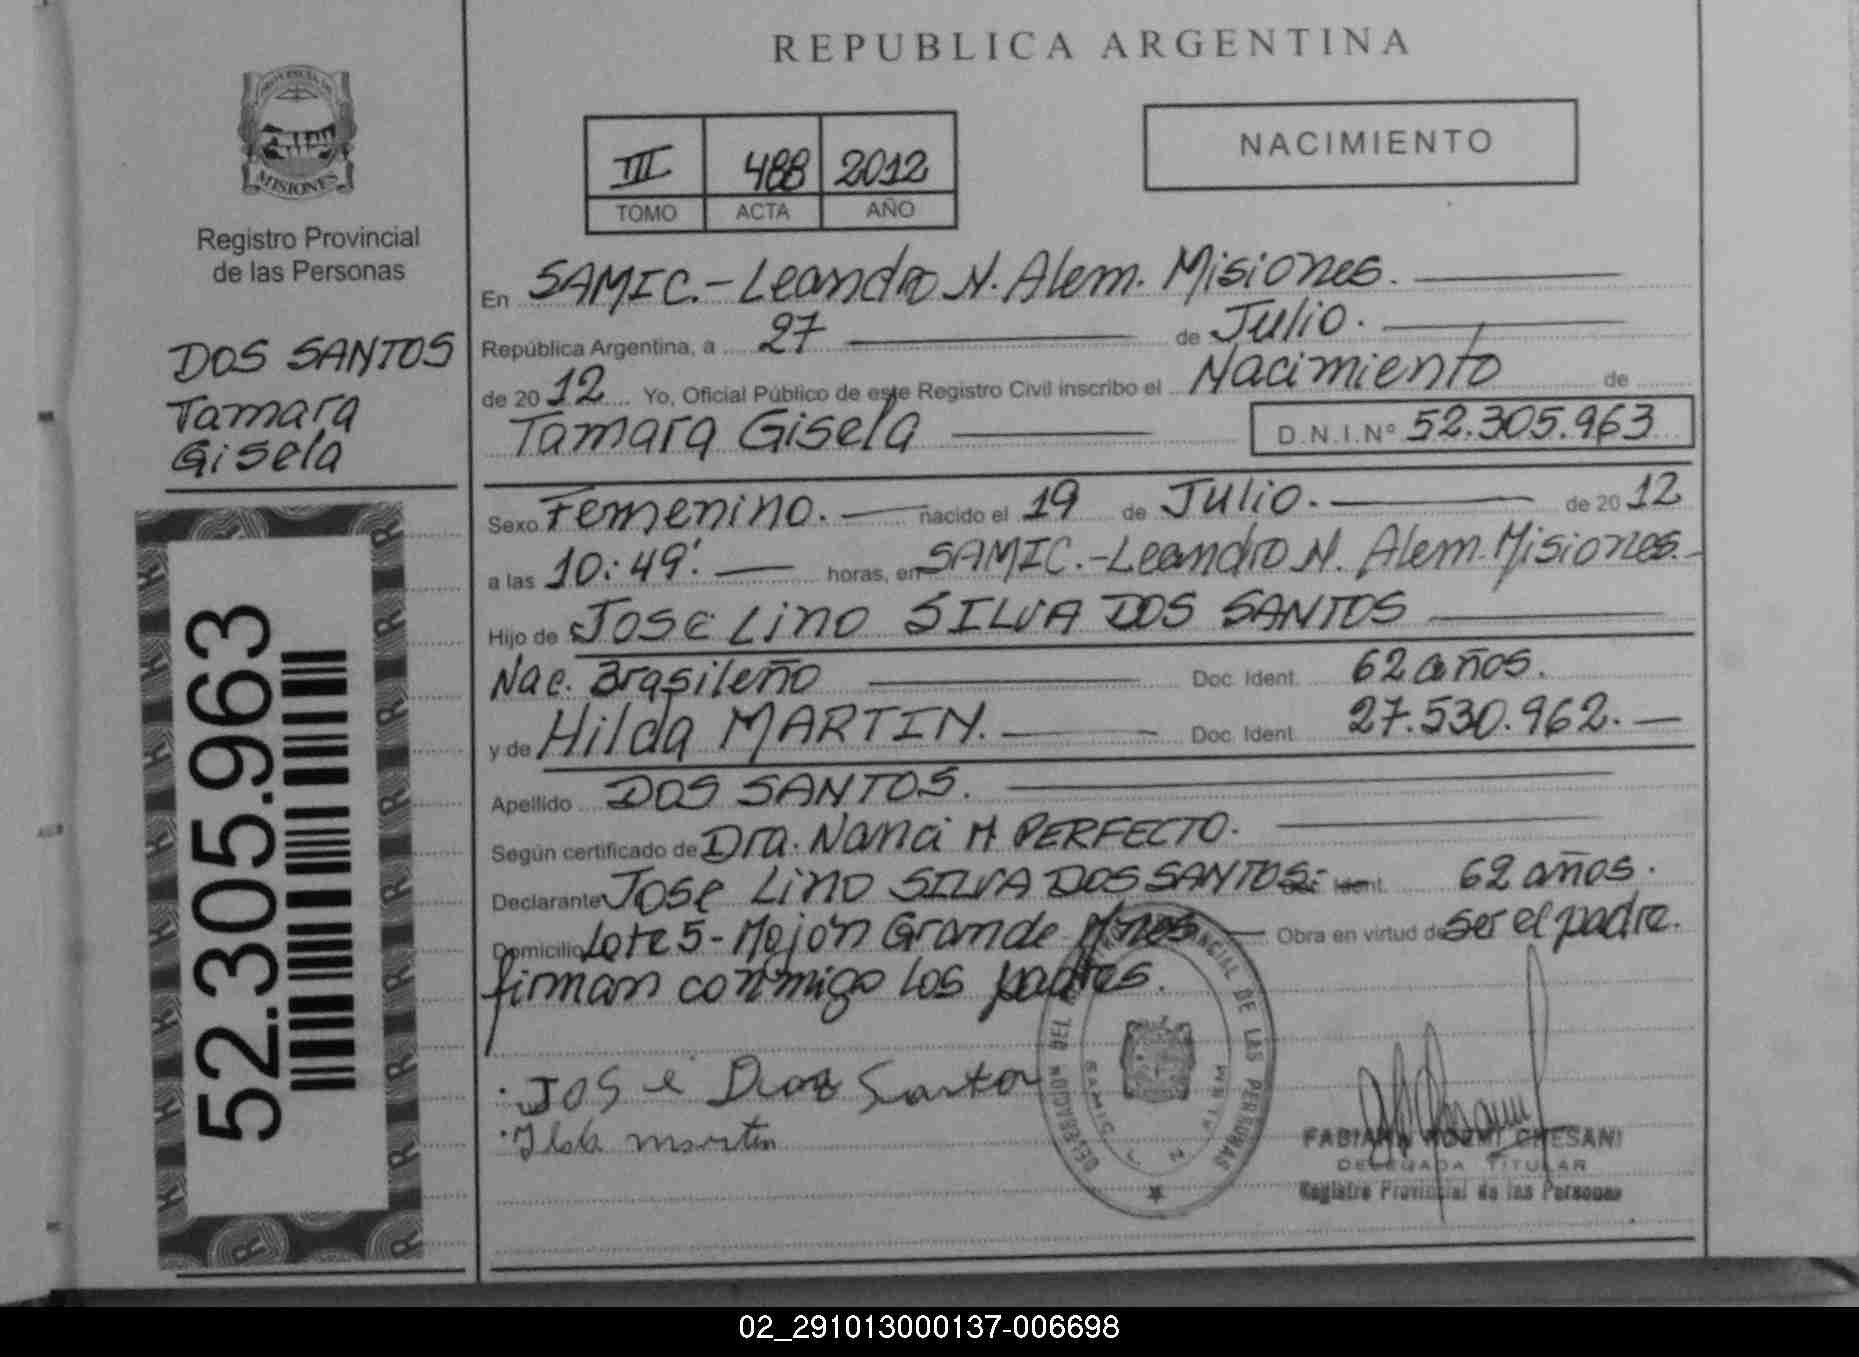 REPUBLICA ARGENTINA
PROVINCIA DE
MISIONES
Registro Provincial
de las Personas
DOS SANTOS
Tamara
Gisela
52.305.963
III 488 2012
TOMO ACTA AÑO
NACIMIENTO
En SAMIC.-Leandro N. Alem. Misiones.
República Argentina, a 27 de Julio.
de 2012 Yo, Oficial Público de este Registro Civil inscribo el Nacimiento de
Tamara Gisela D.N.I.Nº 52.305.963
Sexo Femenino. nacido el 19 de Julio. de 2012
a las 10:49' horas, en SAMIC.-Leandro N. Alem. Misiones.-
Hijo de Jose Lino SILVA DOS SANTOS
Nac. Brasileño Doc. Ident. 62 años.
y de Hilda MARTIN. Doc. Ident. 27.530.962.
Apellido DOS SANTOS.
Según certificado de Dra. Nanci M PERFECTO.
Declarante Jose Lino SILVA DOS SANTOS.- Ident. 62 años.
Domicilio Lote 5 - Mojón Grande Mnes Obra en virtud de ser el padre.
firman conmigo los padres.
José Santo
martin
DELEGACION DEL PROVINCIAL DE LAS PERSONAS
SAMIC
FABIANA NOEMI CHESANI
DELEGADA TITULAR
Registro Provincial de las Personas
02_291013000137-006698